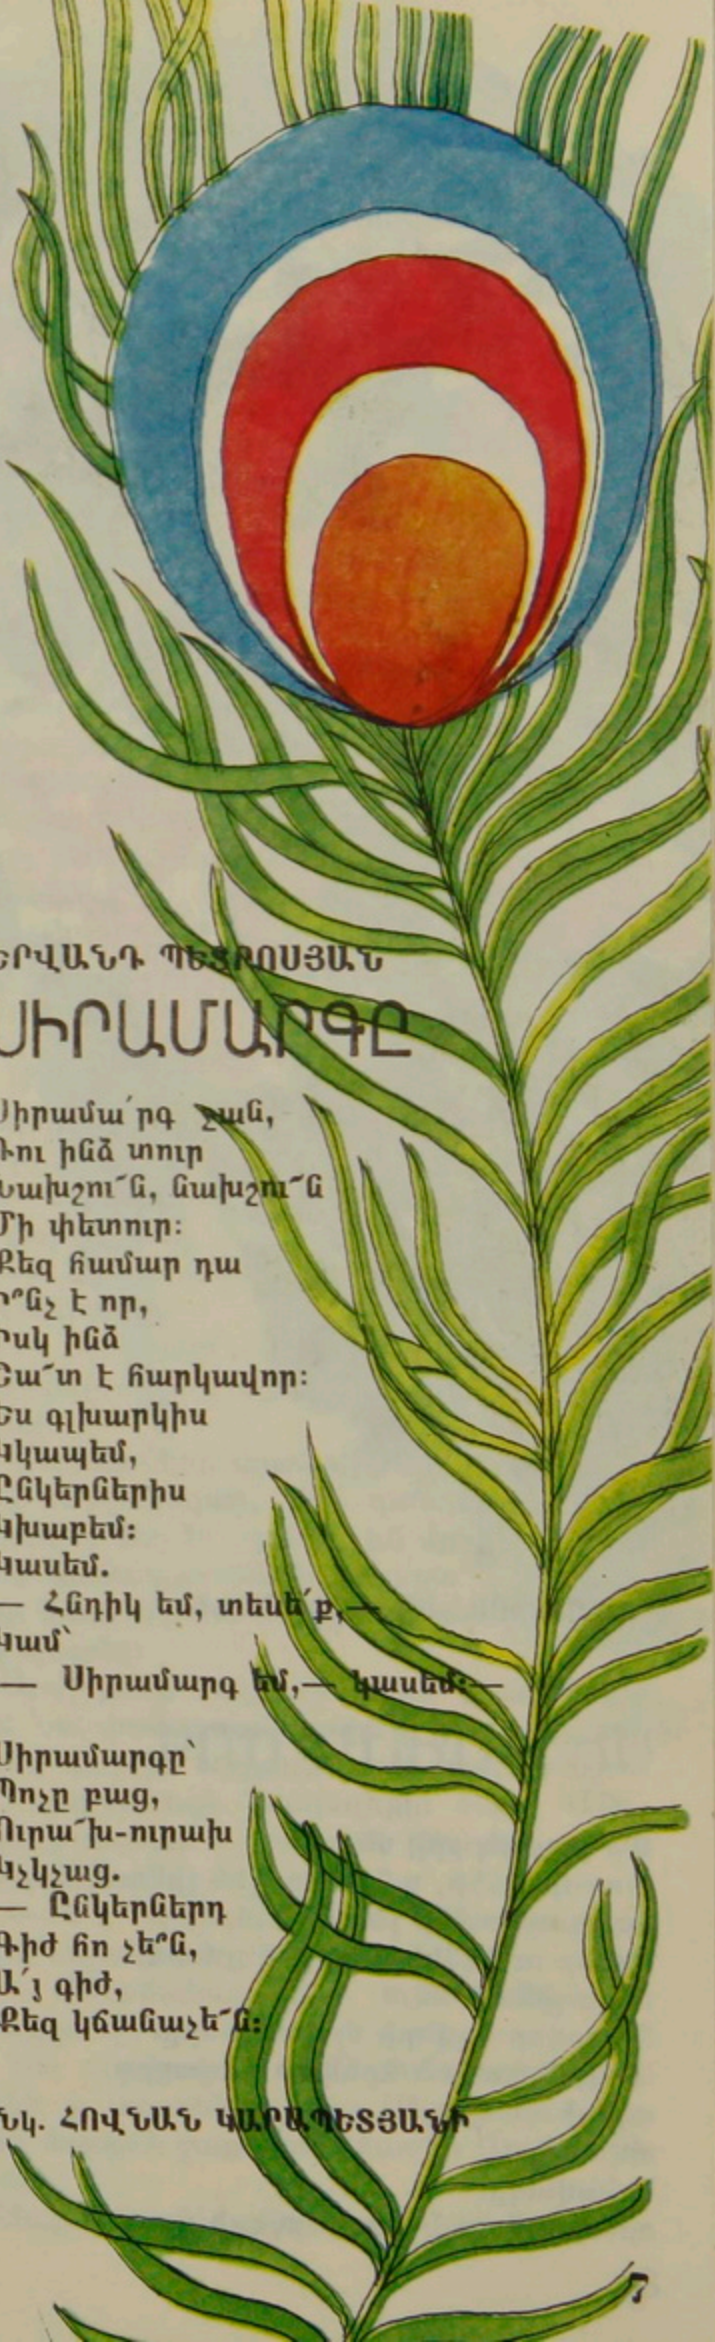 ԵՐՎԱՆԴ ՊԵՏՐՈՍՅԱՆ
ՍԻՐԱՄԱՐԳԸ
Սիրամա՛րգ ջան,
Դու ինձ տուր
Նախշո՜ւն, նախշո՜ւն
Մի փետուր։
Քեզ համար դա
Ի՞նչ է որ,
Իսկ ինձ
Շա՜տ է հարկավոր։
Ես գլխարկիս
Կկապեմ,
Ընկերներիս
Կխաբեմ։
Կասեմ.
— Հնդիկ եմ, տեսե՛ք,—
Կամ՝
— Սիրամարգ եմ,— կասեմ։—
Սիրամարգը՝
Պոչը բաց,
Ուրա՜խ-ուրախ
Կչկչաց.
— Ընկերներդ
Գիժ հո չե՞ն,
Ա՛յ գիժ,
Քեզ կճանաչե՜ն։
Նկ. ՀՈՎՆԱՆ ԿԱՐԱՊԵՏՅԱՆԻ
7